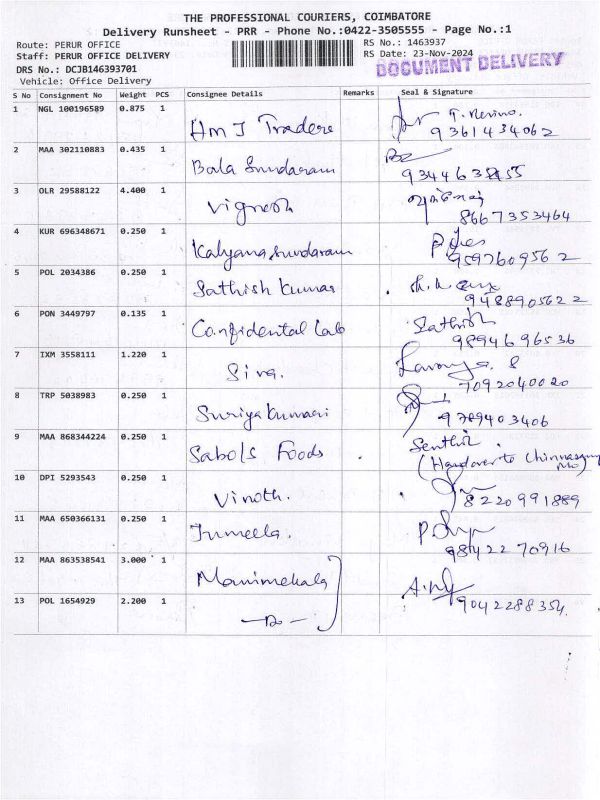 THE PROFESSIONAL COURIERS, COIMBATORE
Delivery Runsheet - PRR - Phone No.:0422-3505555 - Page No.:1
Route: PERUR OFFICE
RS No.: 1463937
Staff: PERUR OFFICE DELIVERY
RS Date: 23-Nov-2024
DRS No.: DCJB146393701
DOCUMENT DELIVERY
Vehicle: Office Delivery
S No Consignment No Weight PCS Consignee Details Remarks Seal & Signature
1 NGL 100196589 0.875 1 Hm J Traders
9361434062
2 MAA 302110883 0.435 1 Bala Sundaram
3 OLR 29588122 4.400 1 Vignesh
8667353464
4 KUR 696348671 0.250 1 Kalyana Sundaram
9597609562
5 POL 2034386 0.250 1 Sathish Kumar
9488905622
6 PON 3449797 0.135 1 Confidental Lab Sathish
9894696536
7 IXM 3558111 1.220 1 Siva. Lavanya. S
7092040020
8 TRP 5038983 0.250 1 Suriya Kumari
9789403406
9 MAA 868344224 0.250 1 Sabols Foods Senthil.
(Handover to Chinnasamy
10 DPI 5293543 0.250 1 Vinoth.
8220991889
11 MAA 650366131 0.250 1 Jumeela.
9842270916
12 MAA 863538541 3.000 1 Manimekala
13 POL 1654929 2.200 1 -Do-
9042288354.